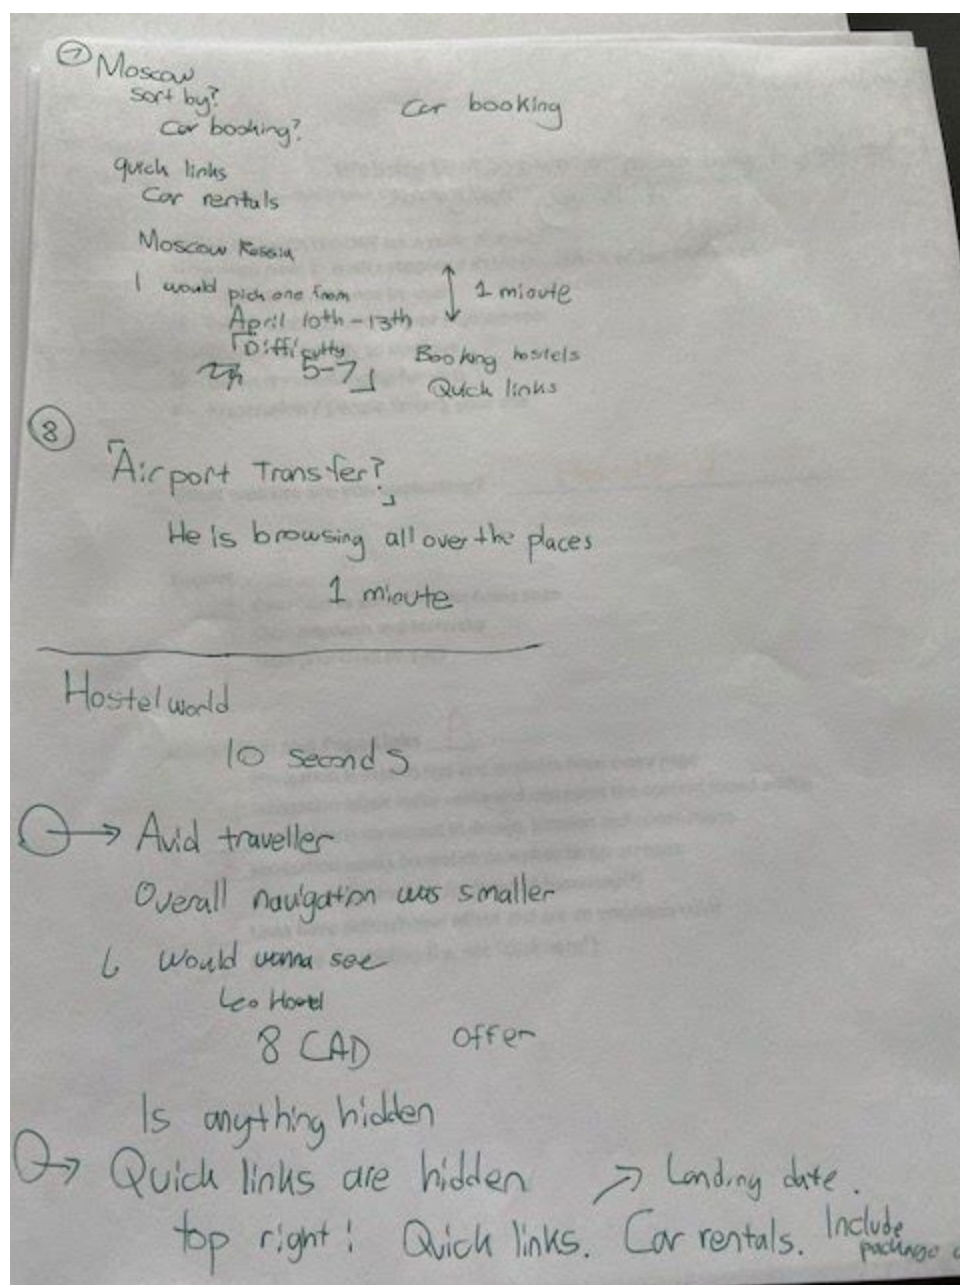 7 Moscow
sort by?
Car booking?
Car booking
quick links
Car rentals
Moscow Russia
I would pick one from
April 10th - 13th
1 mioute
「Difficulty
5-7」
Booking hostels
Quick links
8
「Airport Transfer?」
He is browsing all over the places
1 mioute
Hostelworld
10 seconds
→ Avid traveller
Overall navigation was smaller
Would wanna see
Leo Hostel
8 CAD offer
Is anything hidden
→ Quick links are hidden → Landing date.
top right! Quick links. Car rentals. Include
package